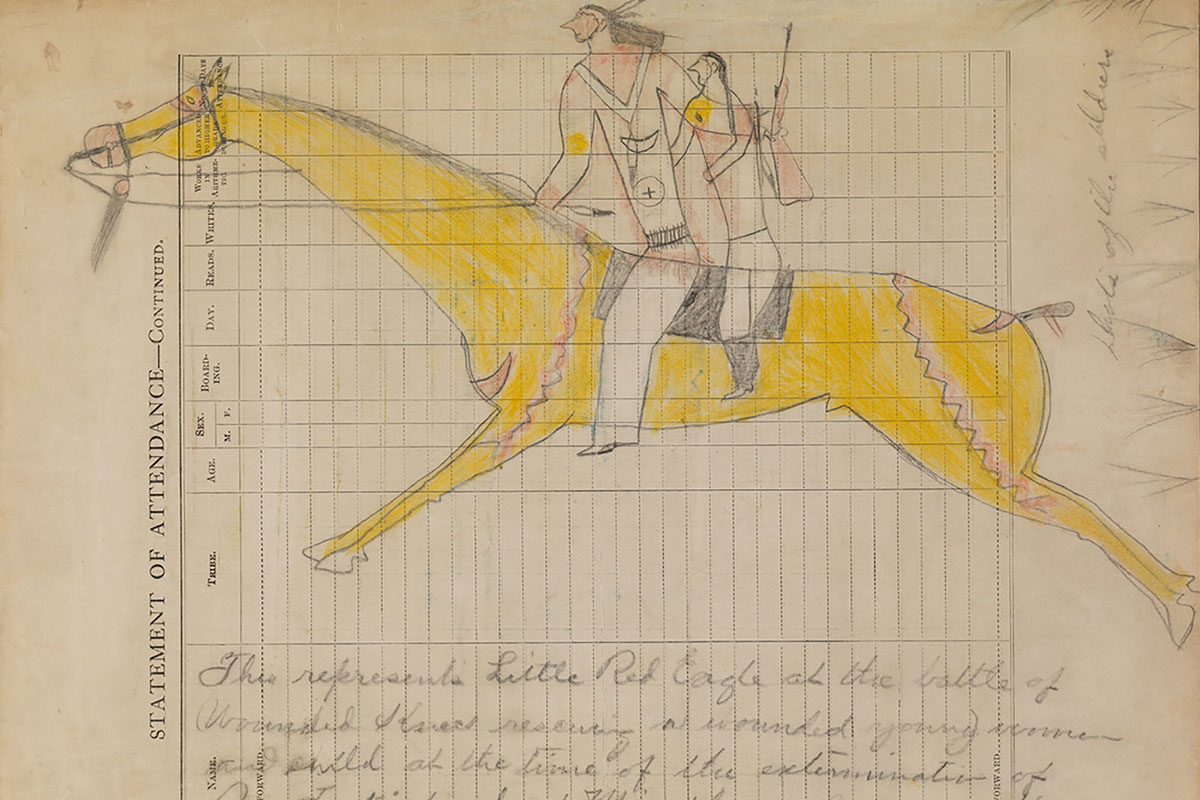 STATEMENT OF ATTENDANCE—CONTINUED.
DAYS
ADVANCED
TO HIGHER
ATTENDANCE
WORKS
IN
ARITHME-
TIC.
WRITES.
READS.
DAY.
BOARD-
ING.
SEX.
M. F.
AGE.
TRIBE.
NAME.
FORWARD.
FORWARD.
of the soldiers
This represents Little Red Eagle at the battle of
Wounded Knee rescuing a wounded young women
and child at the time of the extermination of